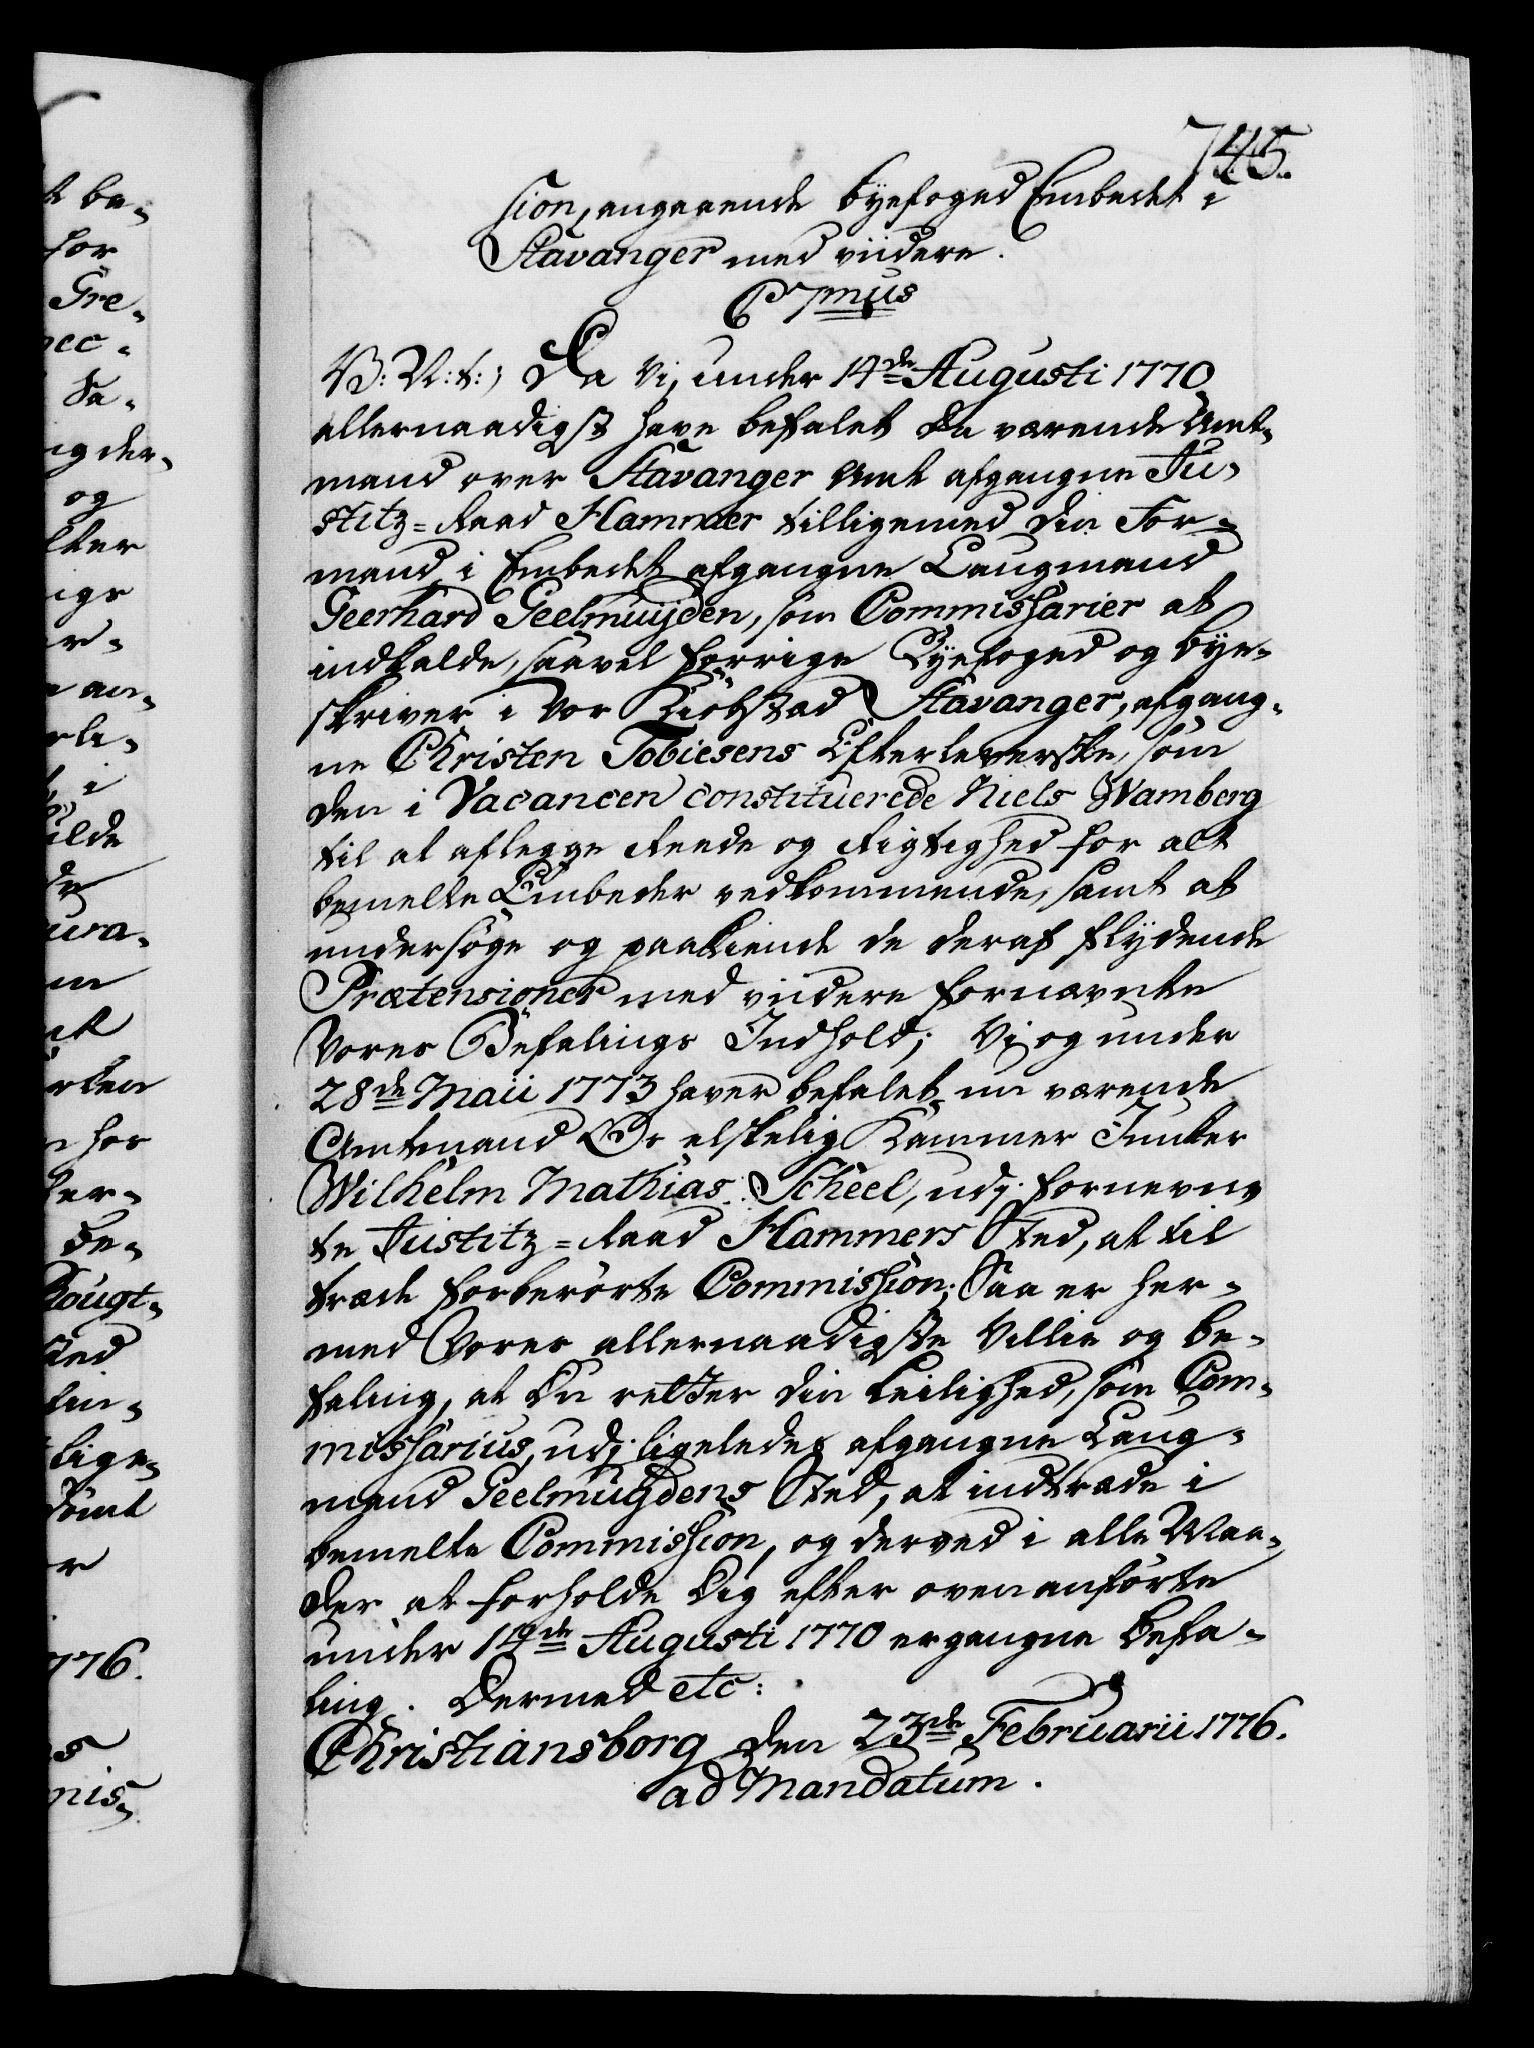 745.
sion, angaaende Byefoged Embedet i
Stavanger med viidere.
C 7mus
V: V: t:; Da Vi, under 14de Augusti 1770
allernaadigst have befalet da værende Amt-
mand over Stavanger Amt afgangne Ju-
stitz-Raad Hammer tilligemed din For-
mand i Embedet afgangne Laugmand
Geerhard Geelmuijden, som Commissarier at
indkalde, saavel forrige Byefoged og Bye-
skriver i Vor Kiøbstad Stavanger, afgang-
ne Christen Tobiesens Efterleverske, som
den i Vacancen constituerede Niels Wamberg
til at aflegge Reede og Rigtighed for alt
bemelte Embeder vedkommende, samt at
undersøge og paakiende de deraf flÿdende
Prætensioner med viidere fornævnte
Vores Befalings Indhold; Vi og under
28de Maii 1773 haver befalet nu værende
Amtmand Os elskelig Kammer Junker
Wilhelm Mathias Scheel, udj fornevn-
te Justitz-Raad Hammers Sted, at til
træde forberørte Commission; Saa er her-
med Vores allernaadigste Villie og be-
faling, at Du retter din Leilighed, som Com-
missarius, udj ligeledes afgangne Laug-
mand Geelmuÿdens Sted, at indtræde i
bemelte Commission, og derved i alle Maa-
der at forholde Dig efter ovenanførte
under 14de Augusti 1770 ergangne Befa-
ling. Dermed etc:
Christiansborg den 23de Februarii 1776.
ad Mandatum.